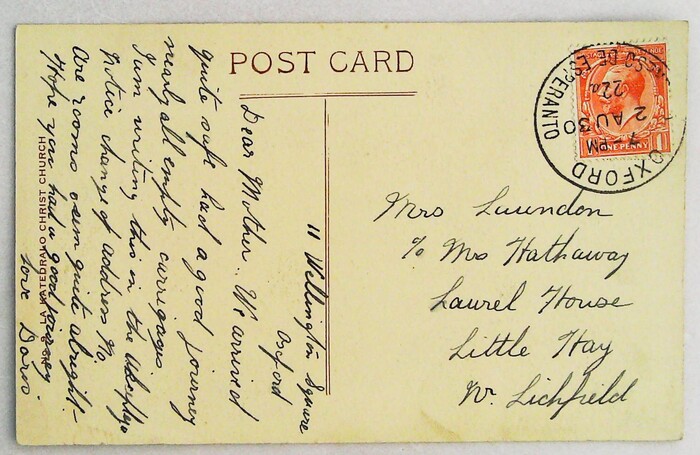 POST CARD
11 Wellington Square
Oxford
Dear Mother. We arrived
quite safe had a good journey
nearly all empty carrigages
I am writing this in the
Notice change of address %
Are rooms seem quite alright.
Hope you had a good journey
love Doris.
LA KATEDRALO CHRIST CHURCH
Mrs
% Mrs Hathaway
Laurel House
Little Hay
Nr. Lichfield
ONE PENNY
OXFORD
7- PM
2 AU 30
22a
SO DE ESPERANTO